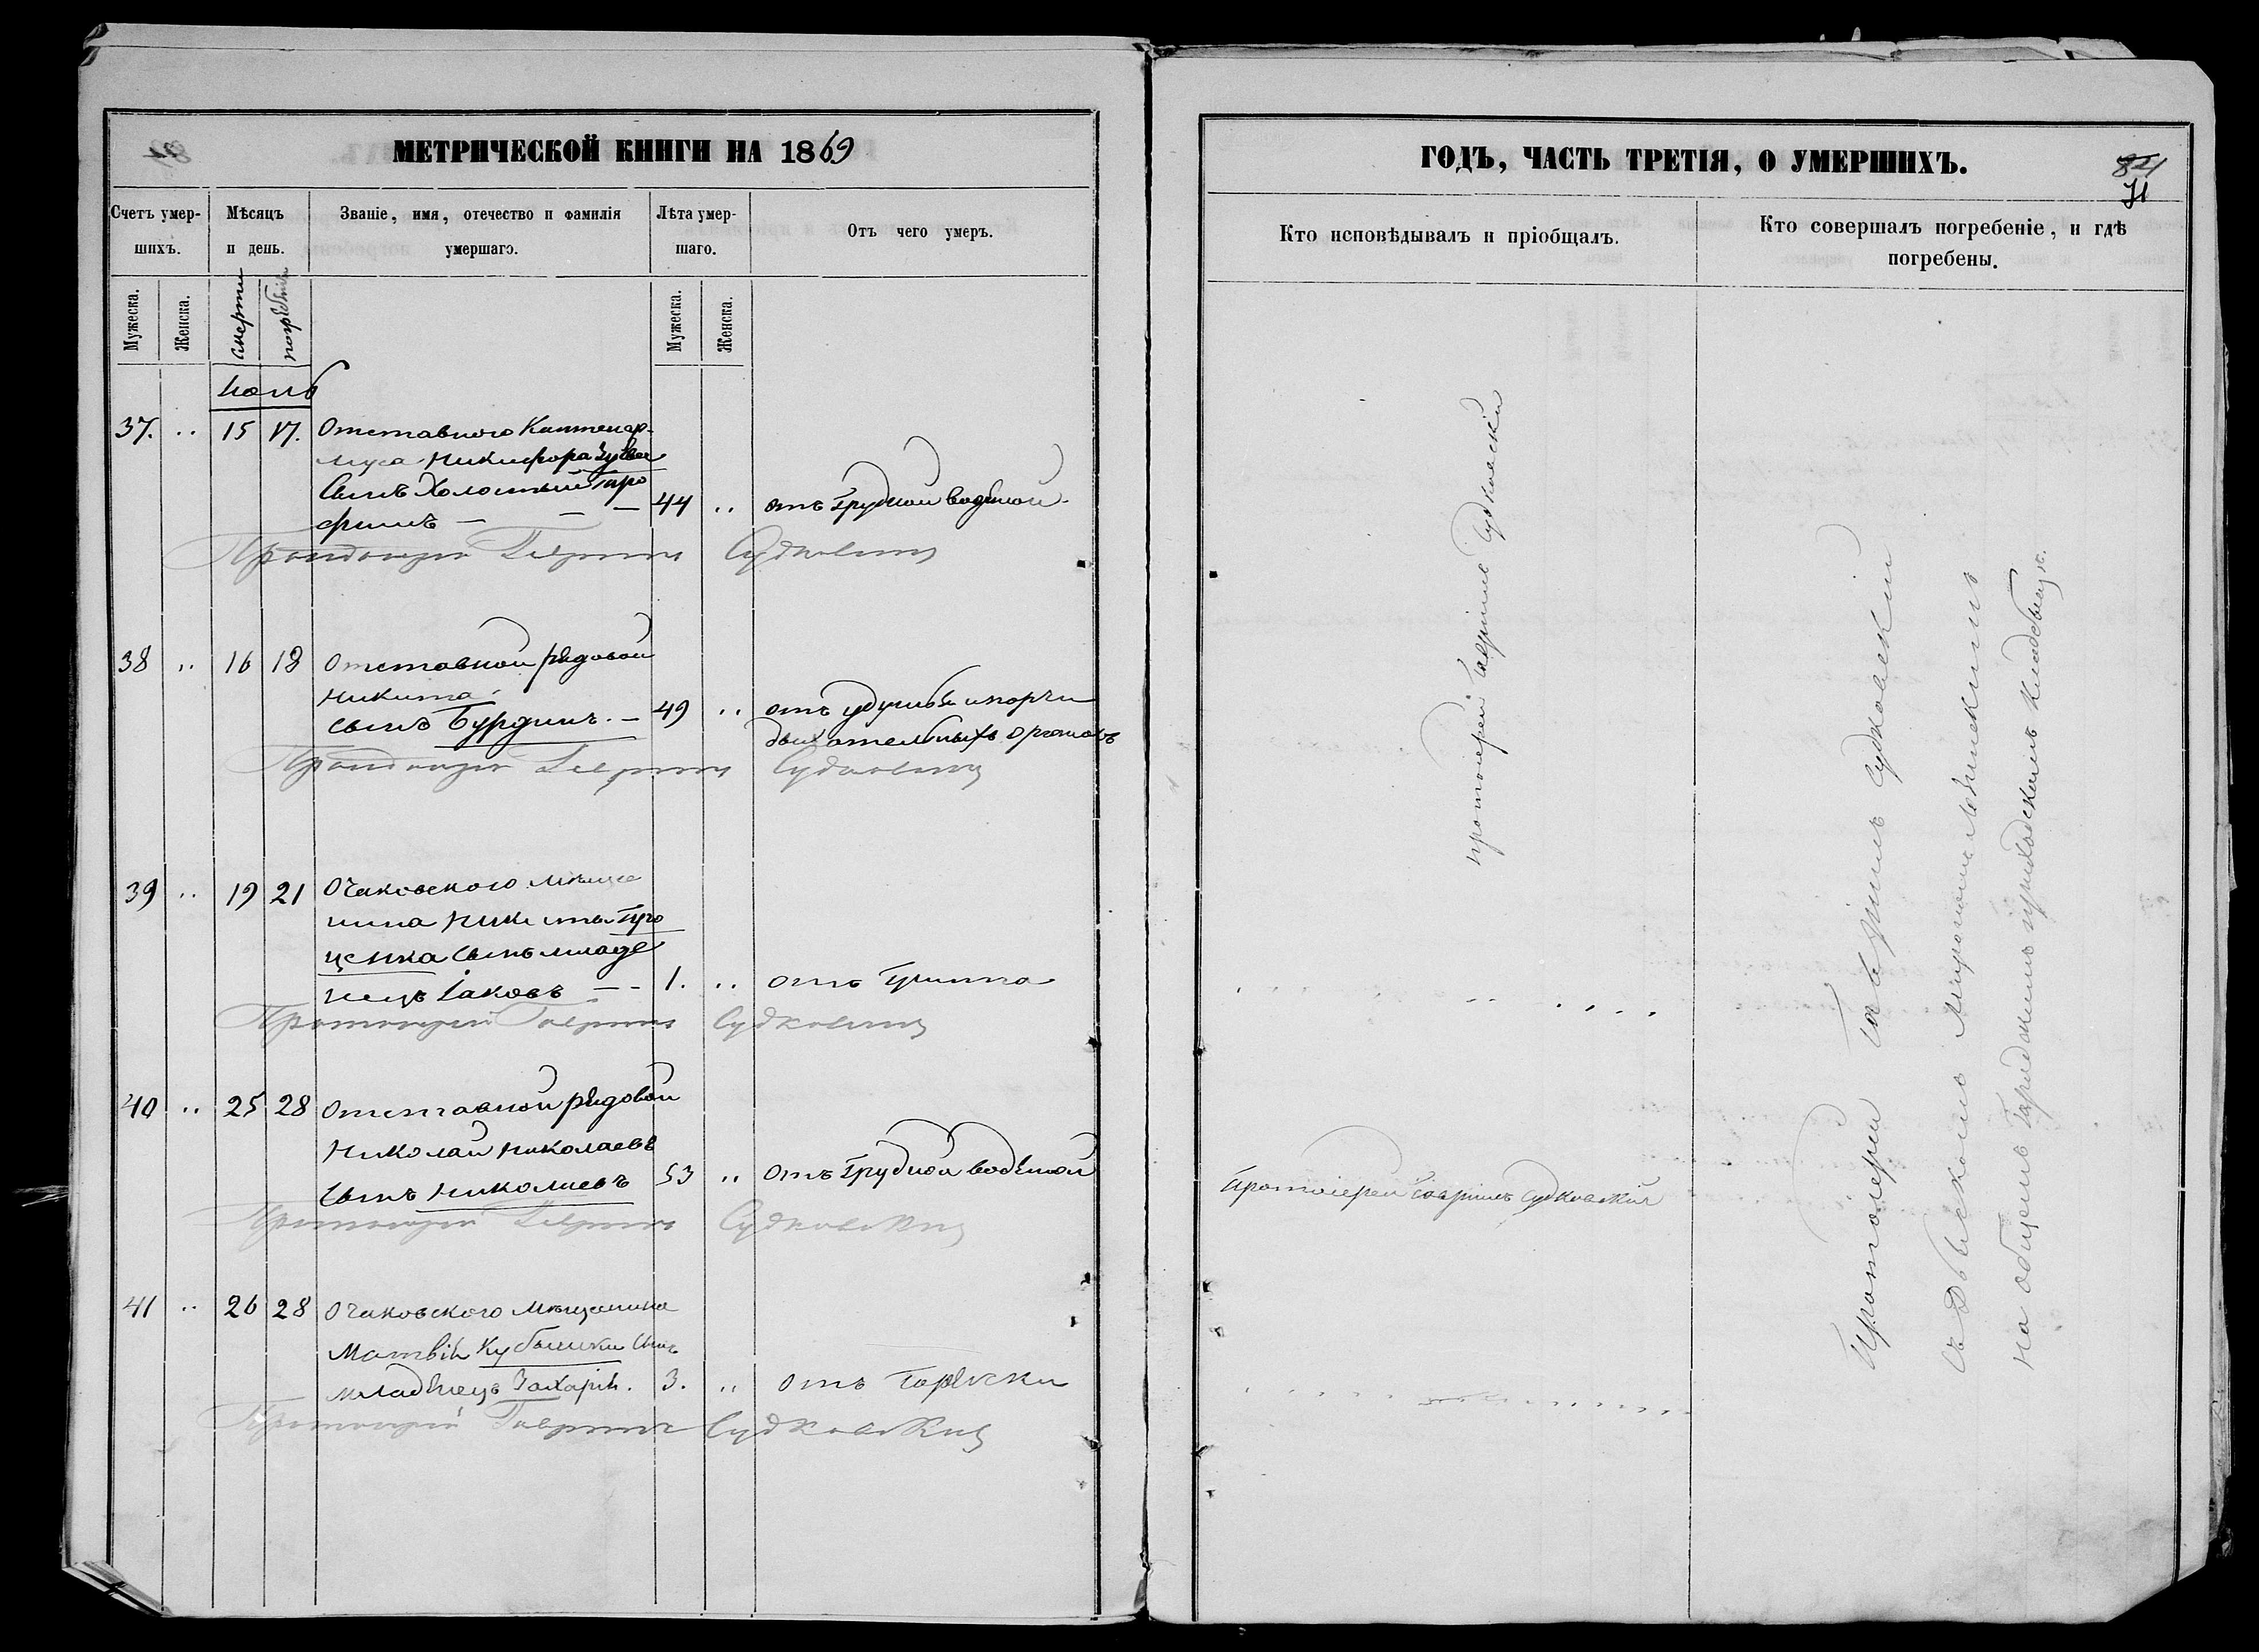 МЕТРИЧЕСКОЙ КНИГИ НА 1869
Счетъ умер-
шихъ.
Мѣсяцъ
и день.
Званіе, имя, отечество и фамилія
умершаго.
Лѣта умер-
шаго.
Отъ чего умеръ.
Мужеска.
Женска.
смерти
погребенія
Мужеска.
Женска.
Іюль
37. .. 15 17. Отставного Каптенар-
муса Никифора
Сынъ Холостый Тро
фимъ — — — 44 .. отъ Грудной водяной
Протоіерей Гавріилъ Судковскій
38 .. 16 18 Отставной рядовой
Никита
сынъ Бурдинъ. — 49 .. отъ удушья и порчи
дыхательныхъ органовъ
Протоіерей Гавріилъ Судковскій
39 .. 19 21 Очаковского мѣща
нина Никиты Про
ценка сынъ младе
нецъ Іаковъ — - 1. .. отъ Гриппа
Протоіерей Гавріилъ Судковскій
40 .. 25 28 Отставной рядовой
Николай Николаевъ
сынъ Николаевъ 53 .. Отъ Грудной водяной
Протоіерей Гавріилъ Судковскій
41 .. 26 28 Очаковского мѣщанина
Матвія Кубышки сынъ
младенецъ Захарій. 3. .. Отъ Горячки
Протоіерей Гавріилъ Судковскій
ГОДЪ, ЧАСТЬ ТРЕТІЯ, О УМЕРШИХЪ.
84
71
Кто исповѣдывалъ и пріобщалъ.
Кто совершалъ погребеніе, и гдѣ
погребены.
протоіерей Гавріилъ Судковскій
Протоіерей Гавріилъ Судковскій
Протоіерей Гавріилъ Судковскій
съ Дьякономъ Мирономъ
на общемъ Городскомъ приходскомъ кладбищѣ.